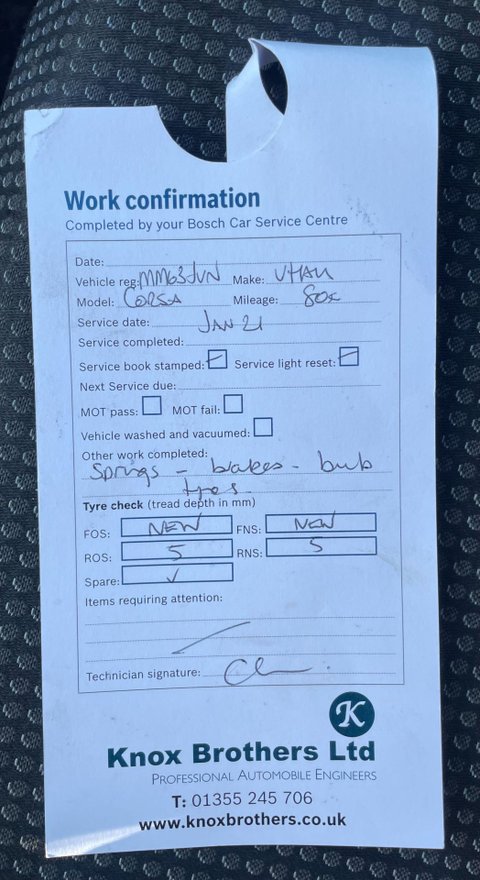 Work confirmation
Completed by your Bosch Car Service Centre
Date:
Vehicle reg: MM63JVN Make: VHALL
Model: CORSA Mileage: 80K
Service date: JAN 21
Service completed:
Service book stamped: Service light reset:
Next Service due:
MOT pass: MOT fail:
Vehicle washed and vacuumed:
Other work completed:
Springs - brakes - bulb
tyres
Tyre check (tread depth in mm)
FOS: NEW FNS: NEW
ROS: 5 RNS: 5
Spare: ✓
Items requiring attention:
Technician signature:
K
Knox Brothers Ltd
PROFESSIONAL AUTOMOBILE ENGINEERS
T: 01355 245 706
www.knoxbrothers.co.uk